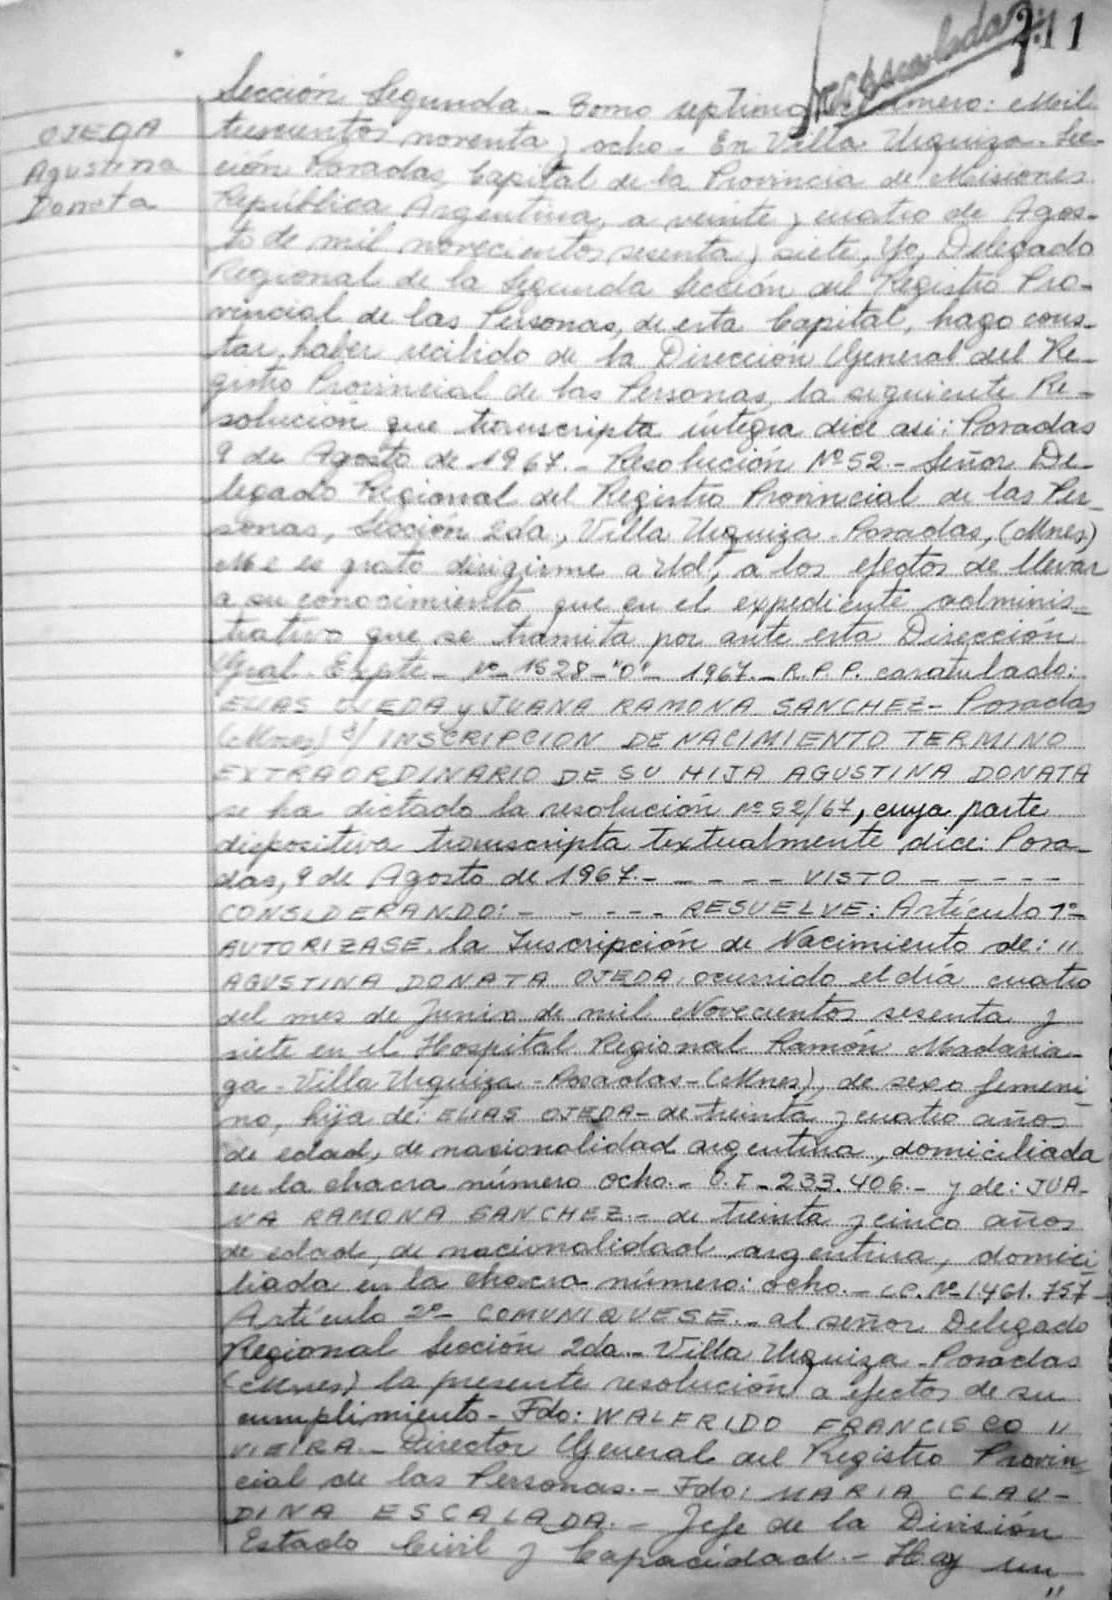 211
Escalada
OJEDA
Agustina
Donata
Sección Segunda.- Tomo septimo número: Mil
trescientos noventa y ocho.- En Villa Urquiza. Sec-
ción Posadas, Capital de la Provincia de Misiones.
República Argentina, a veinte y cuatro de Agos-
to de mil novecientos sesenta y siete, Yo, Delegado
Regional de la Segunda Sección del Registro Pro-
vincial de las Personas, de esta Capital, hago cons-
tar, haber recibido de la Dirección General del Re-
gistro Provincial de las Personas, la siguiente Re-
solución que transcripta íntegra dice asi: Posadas
9 de Agosto de 1967.- Resolución Nº 52.- Señor De-
legado Regional del Registro Provincial de las Per-
sonas, Sección 2da., Villa Urquiza. Posadas, (Mnes)
Me es grato dirigirme a Ud., a los efectos de llevar
a su conocimiento que en el expediente adminis-
trativo que se tramita por ante esta Dirección
Gral. Expte- Nº 1528-"O"- 1967.- R.P.P. caratulado:
ELIAS OJEDA y JUANA RAMONA SANCHEZ- Posadas
(Mnes) s/ INSCRIPCION DE NACIMIENTO TERMINO
EXTRAORDINARIO DE SU HIJA AGUSTINA DONATA
se ha dictado la resolución Nº 52/67, cuya parte
dispositiva transcripta textualmente dice: Posa-
das, 9 de Agosto de 1967.- - - - - - VISTO - - - - -
CONSIDERANDO: - - - - - RESUELVE: Artículo 1º-
AUTORIZASE. la Inscripción de Nacimiento de: "
AGUSTINA DONATA OJEDA. ocurrido el día cuatro
del mes de Junio de mil Novecientos sesenta y
siete en el Hospital Regional Ramón Madaria-
ga- Villa Urquiza- Posadas- (Mnes), de sexo femeni-
no, hija de: ELIAS OJEDA- de treinta y cuatro años
de edad, de nacionalidad argentina, domiciliada
en la chacra número ocho.- C.I- 233.406.- y de: JUA-
NA RAMONA SANCHEZ.- de treinta y cinco años
de edad, de nacionalidad argentina, domici-
liada en la chacra número: ocho.- CC. Nº 1.461.757-
Artículo 2º- COMUNIQUESE.- al señor Delegado
Regional Sección 2da.- Villa Urquiza- Posadas
(Mnes) la presente resolución a efectos de su
cumplimiento- Fdo: WALFRIDO FRANCISCO "
VIEIRA.- Director General del Registro Provin-
cial de las Personas.- Fdo: MARIA CLAU-
DINA ESCALADA.- Jefe de la División
Estado Civil y Capacidad.- Hay un
"